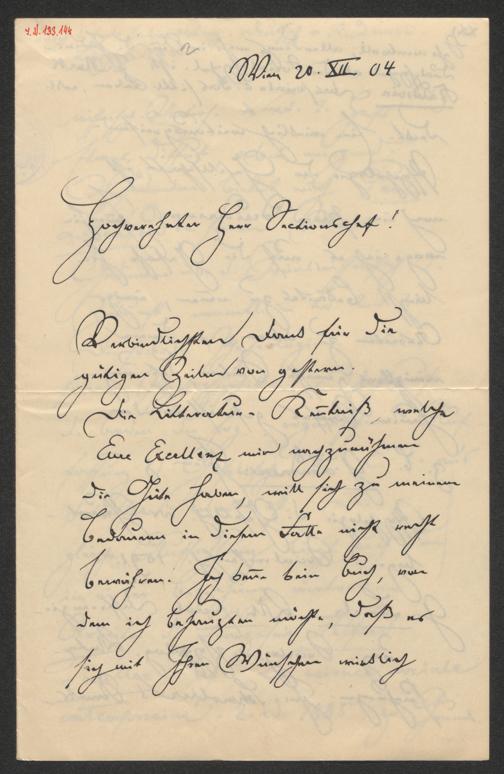 I.N. 193.144
Wien 20. XII 04
Hochverehrter Herr Sectionschef!
Verbindlichsten Dank für die
gütigen Zeilen von gestern.
Die Litteratur-Kenntniß, welche
Eure Excellenz mir nachzurühmen
die Güte haben, will sich zu meinem
Bedauern in diesem Falle nicht recht
bewähren. Ich kenne kein Buch, von
dem ich behaupten möchte, daß es
sich mit Ihren Wünschen wirklich